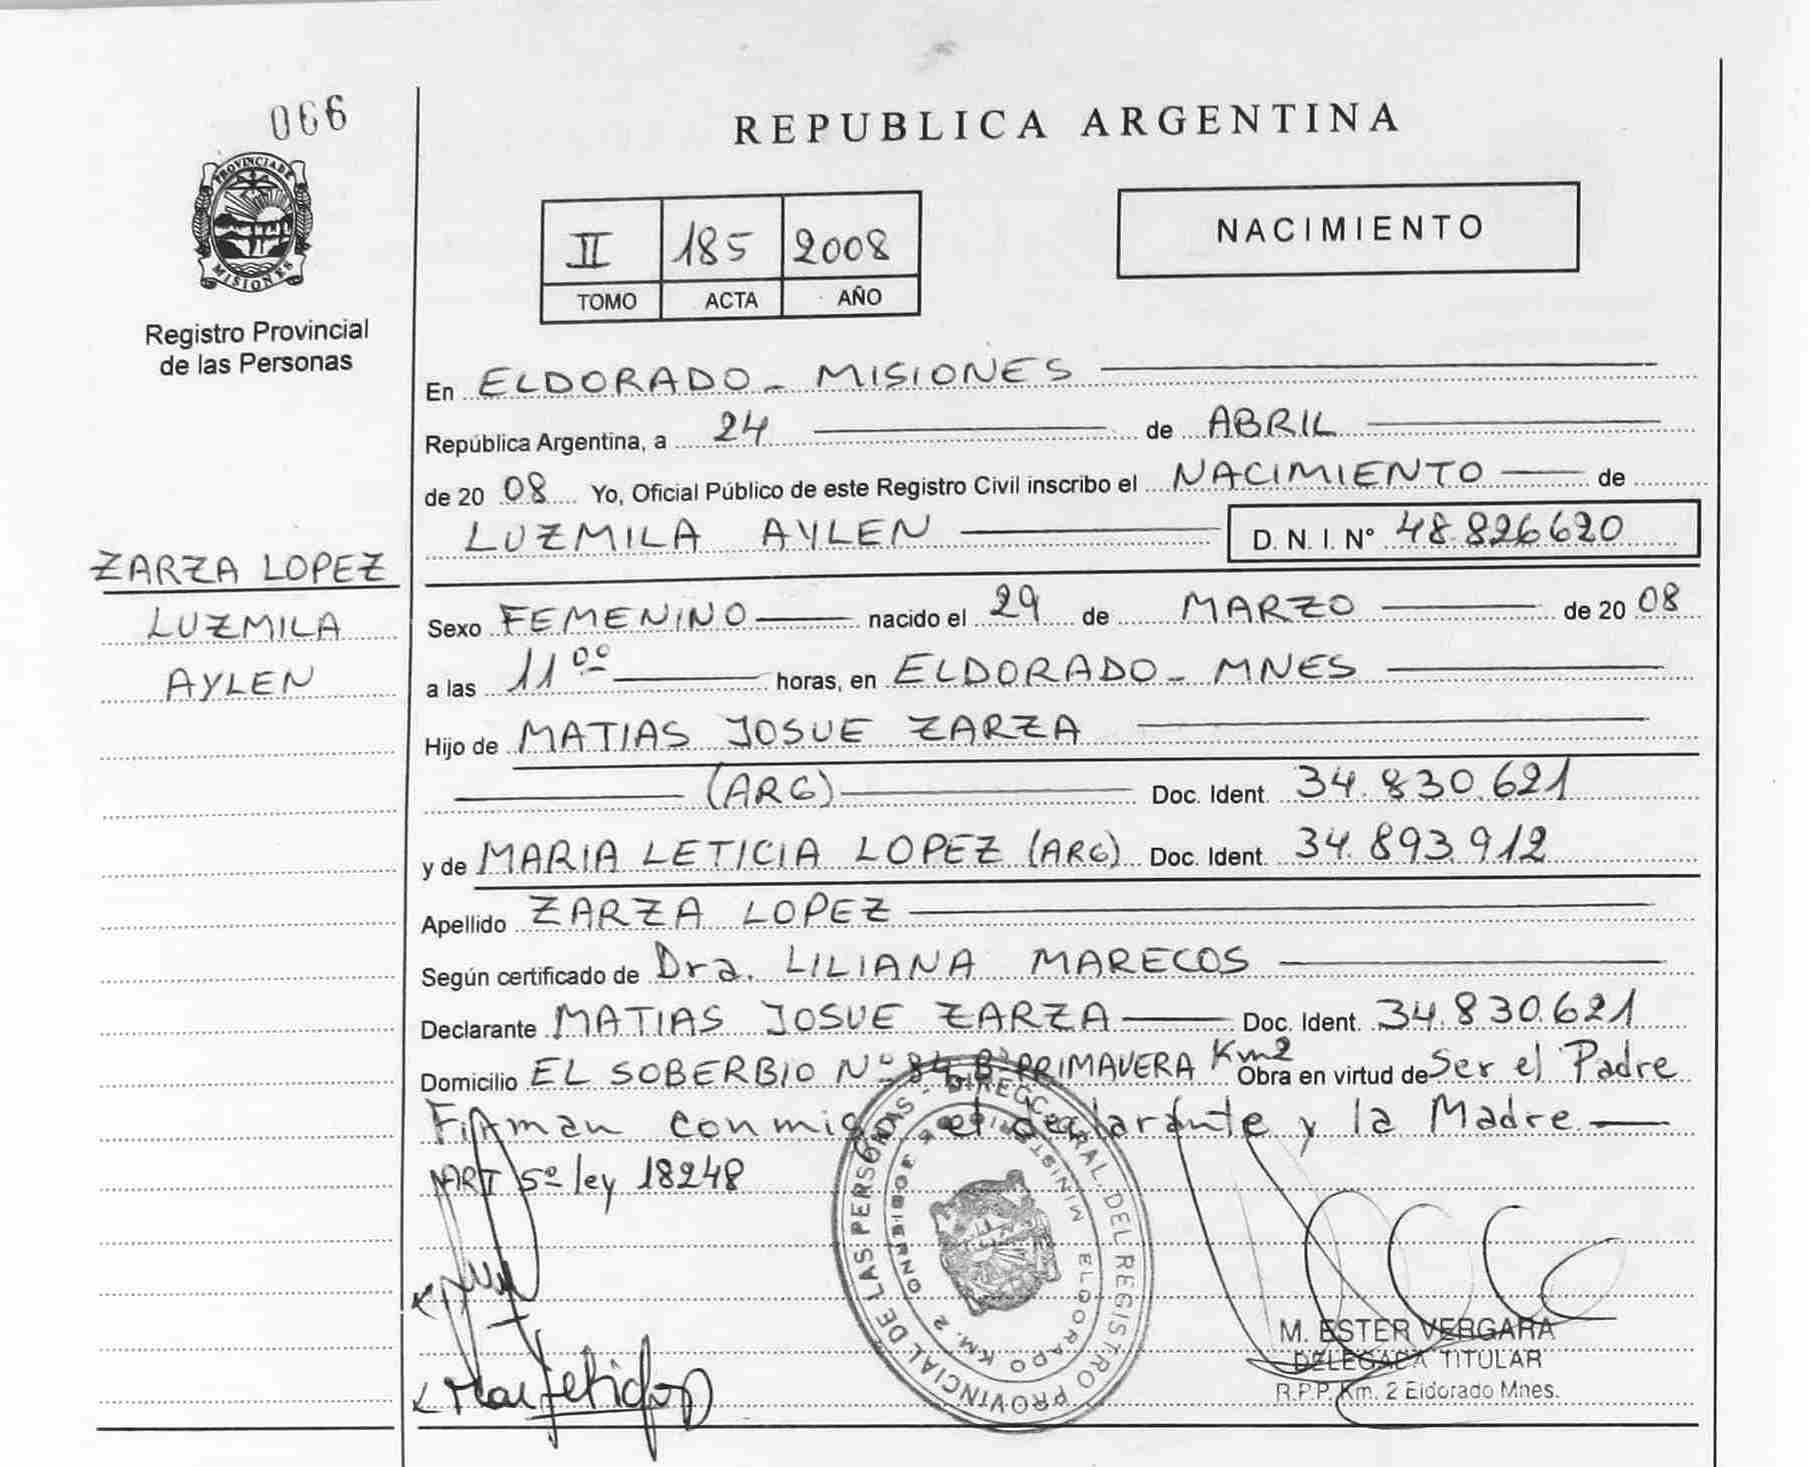 066
PROVINCIA DE
MISIONES
Registro Provincial
de las Personas
REPUBLICA ARGENTINA
II 185 2008
TOMO ACTA AÑO
NACIMIENTO
En ELDORADO - MISIONES
República Argentina, a 24 de ABRIL
de 20 08 Yo, Oficial Público de este Registro Civil inscribo el NACIMIENTO de
LUZMILA AYLEN D. N. I. Nº 48.826620
ZARZA LOPEZ
LUZMILA
AYLEN
Sexo FEMENINO nacido el 29 de MARZO de 20 08
a las 11 00 horas, en ELDORADO - MNES
Hijo de MATIAS JOSUE ZARZA
(ARG) Doc. Ident. 34.830.621
y de MARIA LETICIA LOPEZ (ARG) Doc. Ident. 34.893.912
Apellido ZARZA LOPEZ
Según certificado de Dra. LILIANA MARECOS
Declarante MATIAS JOSUE ZARZA Doc. Ident. 34.830.621
Domicilio EL SOBERBIO Nº 84 Bº PRIMAVERA Km2 Obra en virtud de Ser el Padre
Firman conmigo el declarante y la Madre
ART 5º ley 18248
DEL REGISTRO PROVINCIAL DE LAS PERSONAS
ELDORADO KM. 2
M. ESTER VERGARA
DELEGADA TITULAR
R.P.P. Km. 2 Eldorado Mnes.